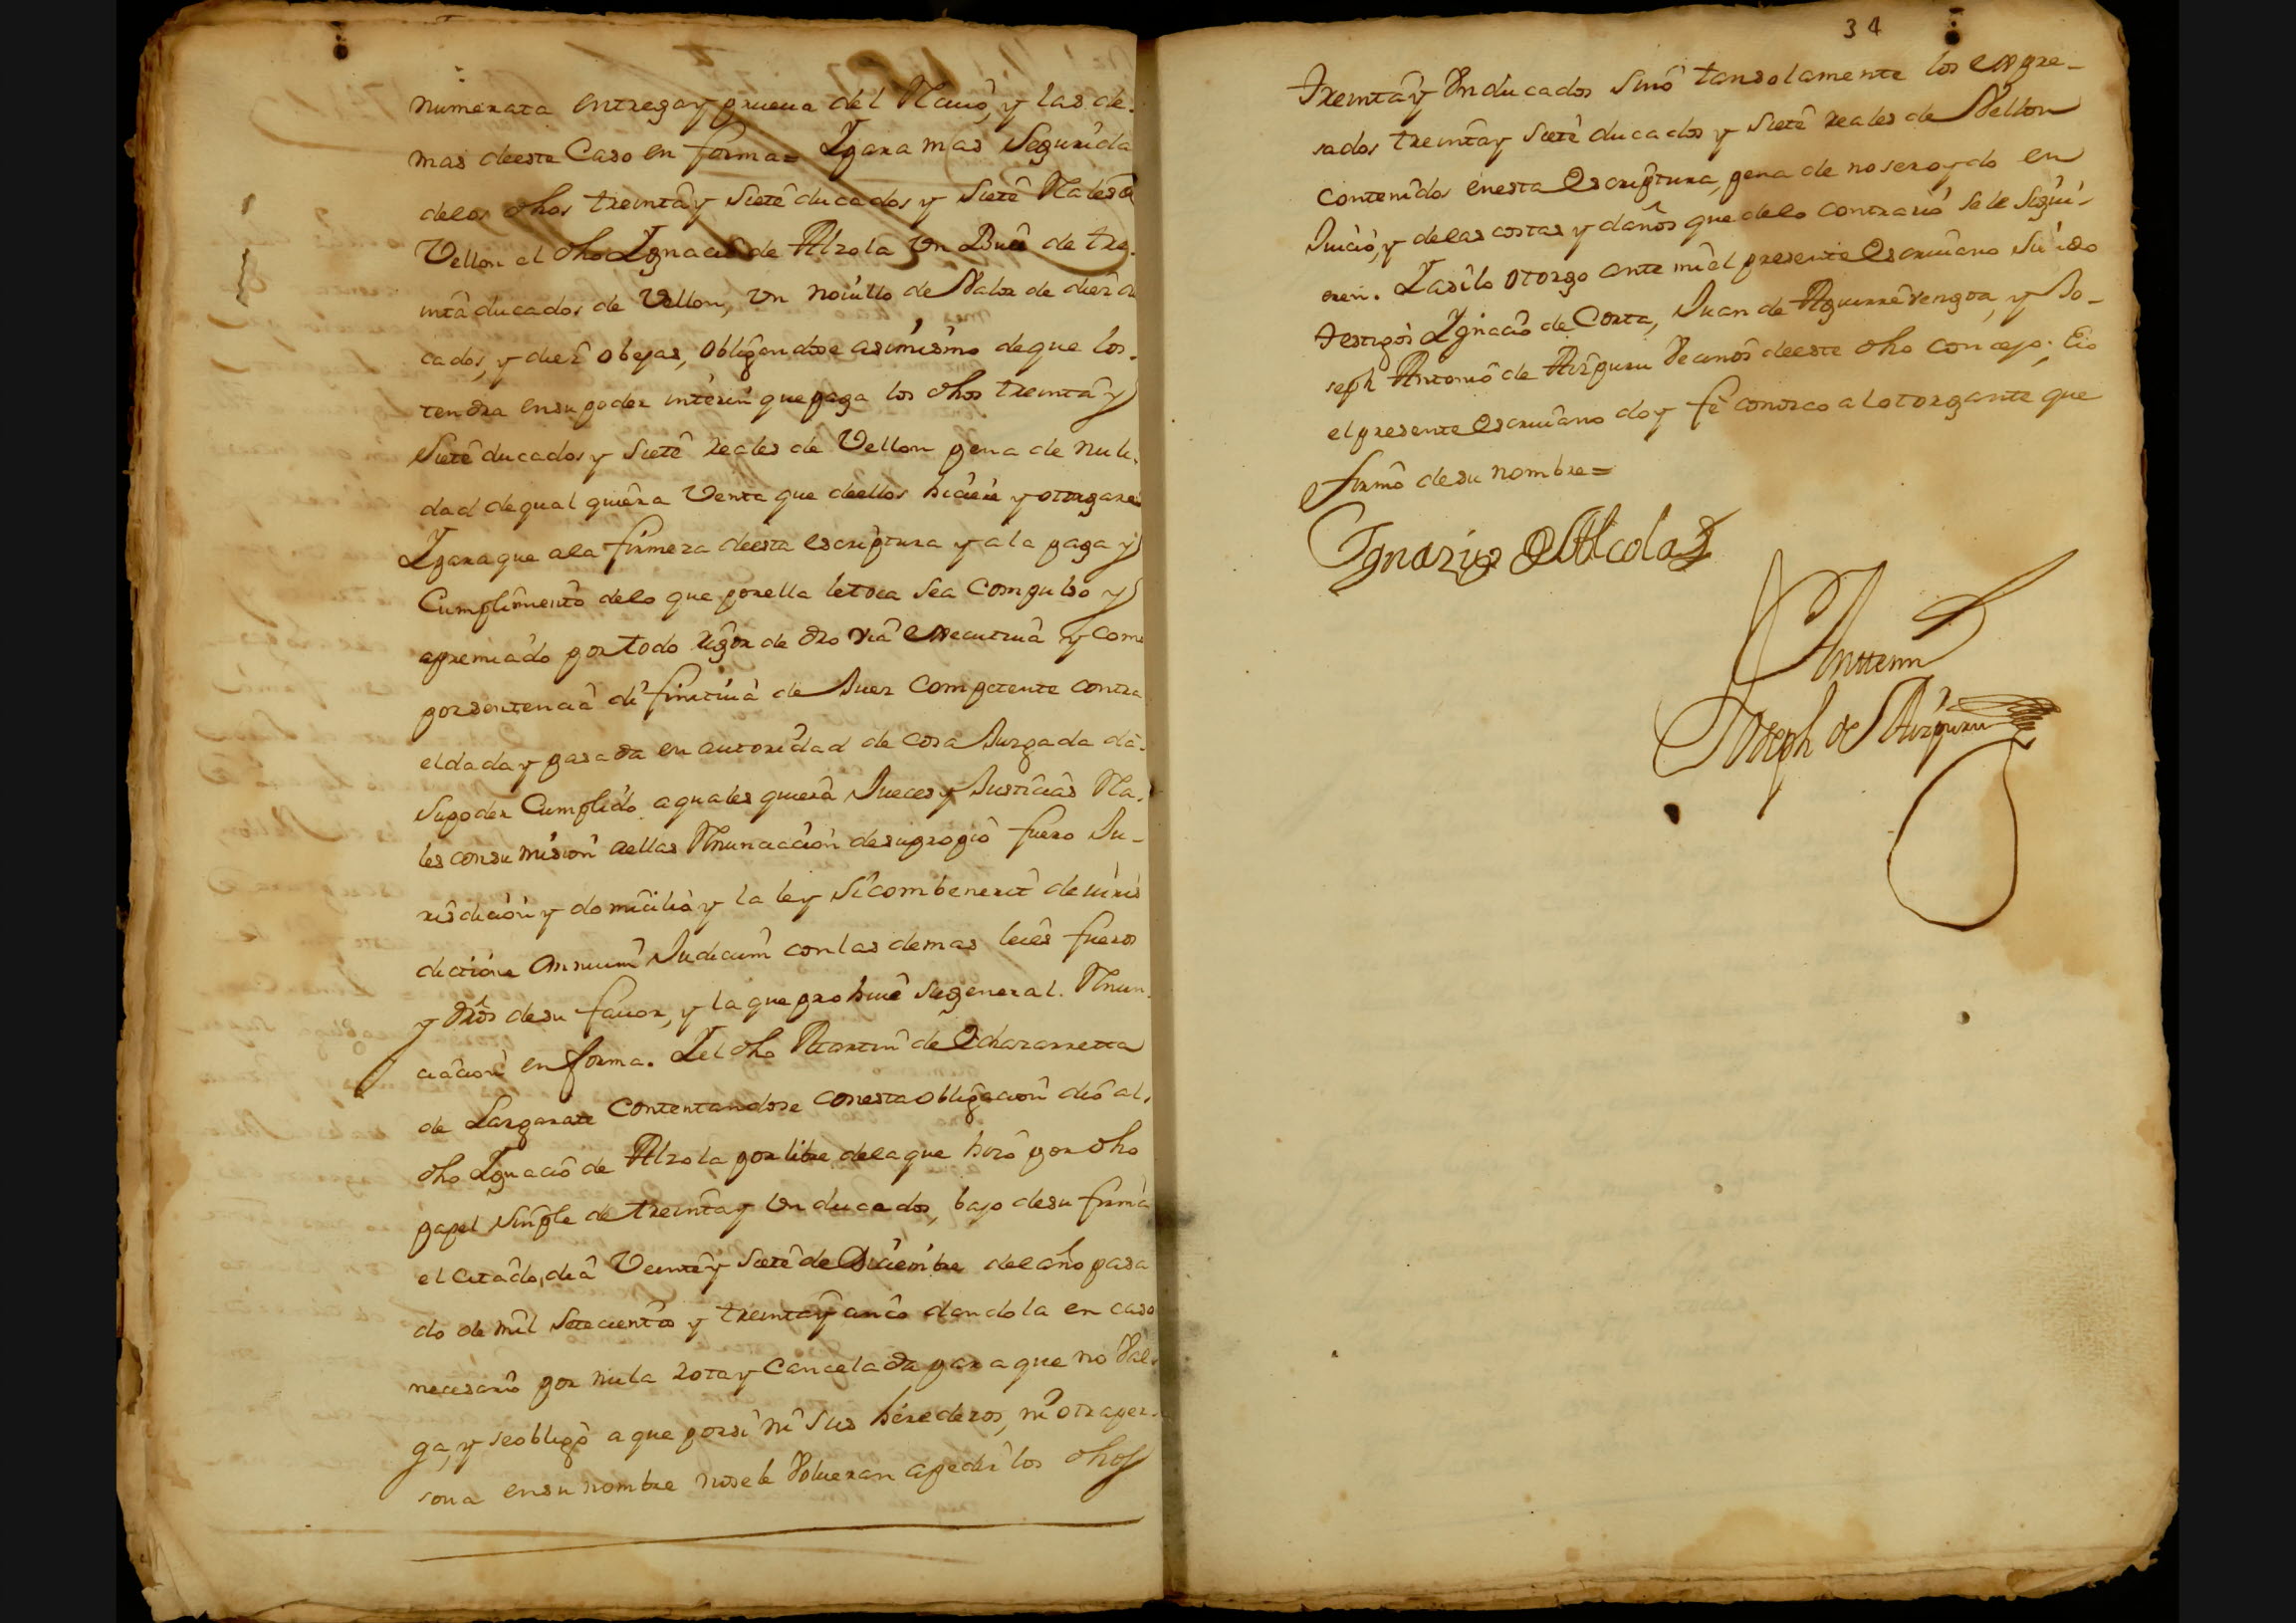 numerata entrega y prueua del Reciuo, y las de-
mas deeste Caso en forma= Y para mas Segurida
delos dhos treinta y Siete ducados y Siete Rales de
Vellon el dho Ygnacio de Alzola Un Buei de tre-
inta ducados de Vellon, Un nouillo de Valor de diez du
cados, y diez obejas, obligandose asimismo deque los
tendra ensu poder interin que paga los dhos treinta y
Siete ducados y Siete reales de Vellon pena de nuli-
dad dequal quiera Venta que deellos hiciere y otorgare
Y paraque ala firmeza deesta escriptura y ala paga y
Cumplimiento delo que porella letoca Sea Compulso y
apremiado por todo rigor de dro via executiua y como
porsentencia difinitiua de Juez Competente contra
eldada y pasada en autoridad de cosa Juzgada dá
Supoder Cumplido aquales quiera Jueces y Justicias Rea-
les consu mision aellas Renunciacion desupropio fuero Ju-
risdicion y domicilio y la ley Sicombenerit de iuris
dicione omnium Judicum conlas demas leies fueros
y dros desu fauor, y la que prohiue Sugeneral Renun-
ciacion en forma. Y el dho Martin de Echazarreta
de Larzarate Contentandose conesta obligacion dió al
dho Ygnacio de Alzola por libre delaque hizo por dho
papel Simple de treinta y Un ducados, bajo desu firma
el citado, dia Veinte y Siete de Diciembre del año pasa
do de mil Setecientos y treinta y cinco dandola en caso
necesario por nula rota y Cancelada para que no Val-
ga, y seobligó a que porsi ni Sus herederos, ni otra per-
sona ensu nombre nosele Volueran apedir los dhos
34
treinta y Un ducados Sinó tansolamente los expre-
sados treinta y Siete ducados y Siete reales de Vellon
Contenidos enesta Escriptura, pena de no seroydo en
Juicio, y delas costas y daños que delo Contrario Sele Sigui-
eren. Y asilo otorgo ante mi el presente Escriuano Siendo
testigos Ygnacio de Corta, Juan de Aguirrevengoa, y Jo-
seph Antonio de Aizpuru Vecinos deeste dho Concejo; Eio
el presente Escriuano doy fe conozco al otorgante que
firmó desu nombre=
Ygnazio de Alcola
Anttemi
Joseph de Aizpuru